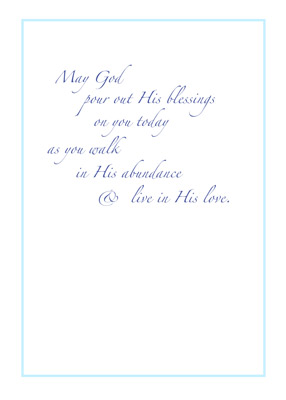 May God
pour out His blessings
on you today
as you walk
in His abundance
& live in His love.